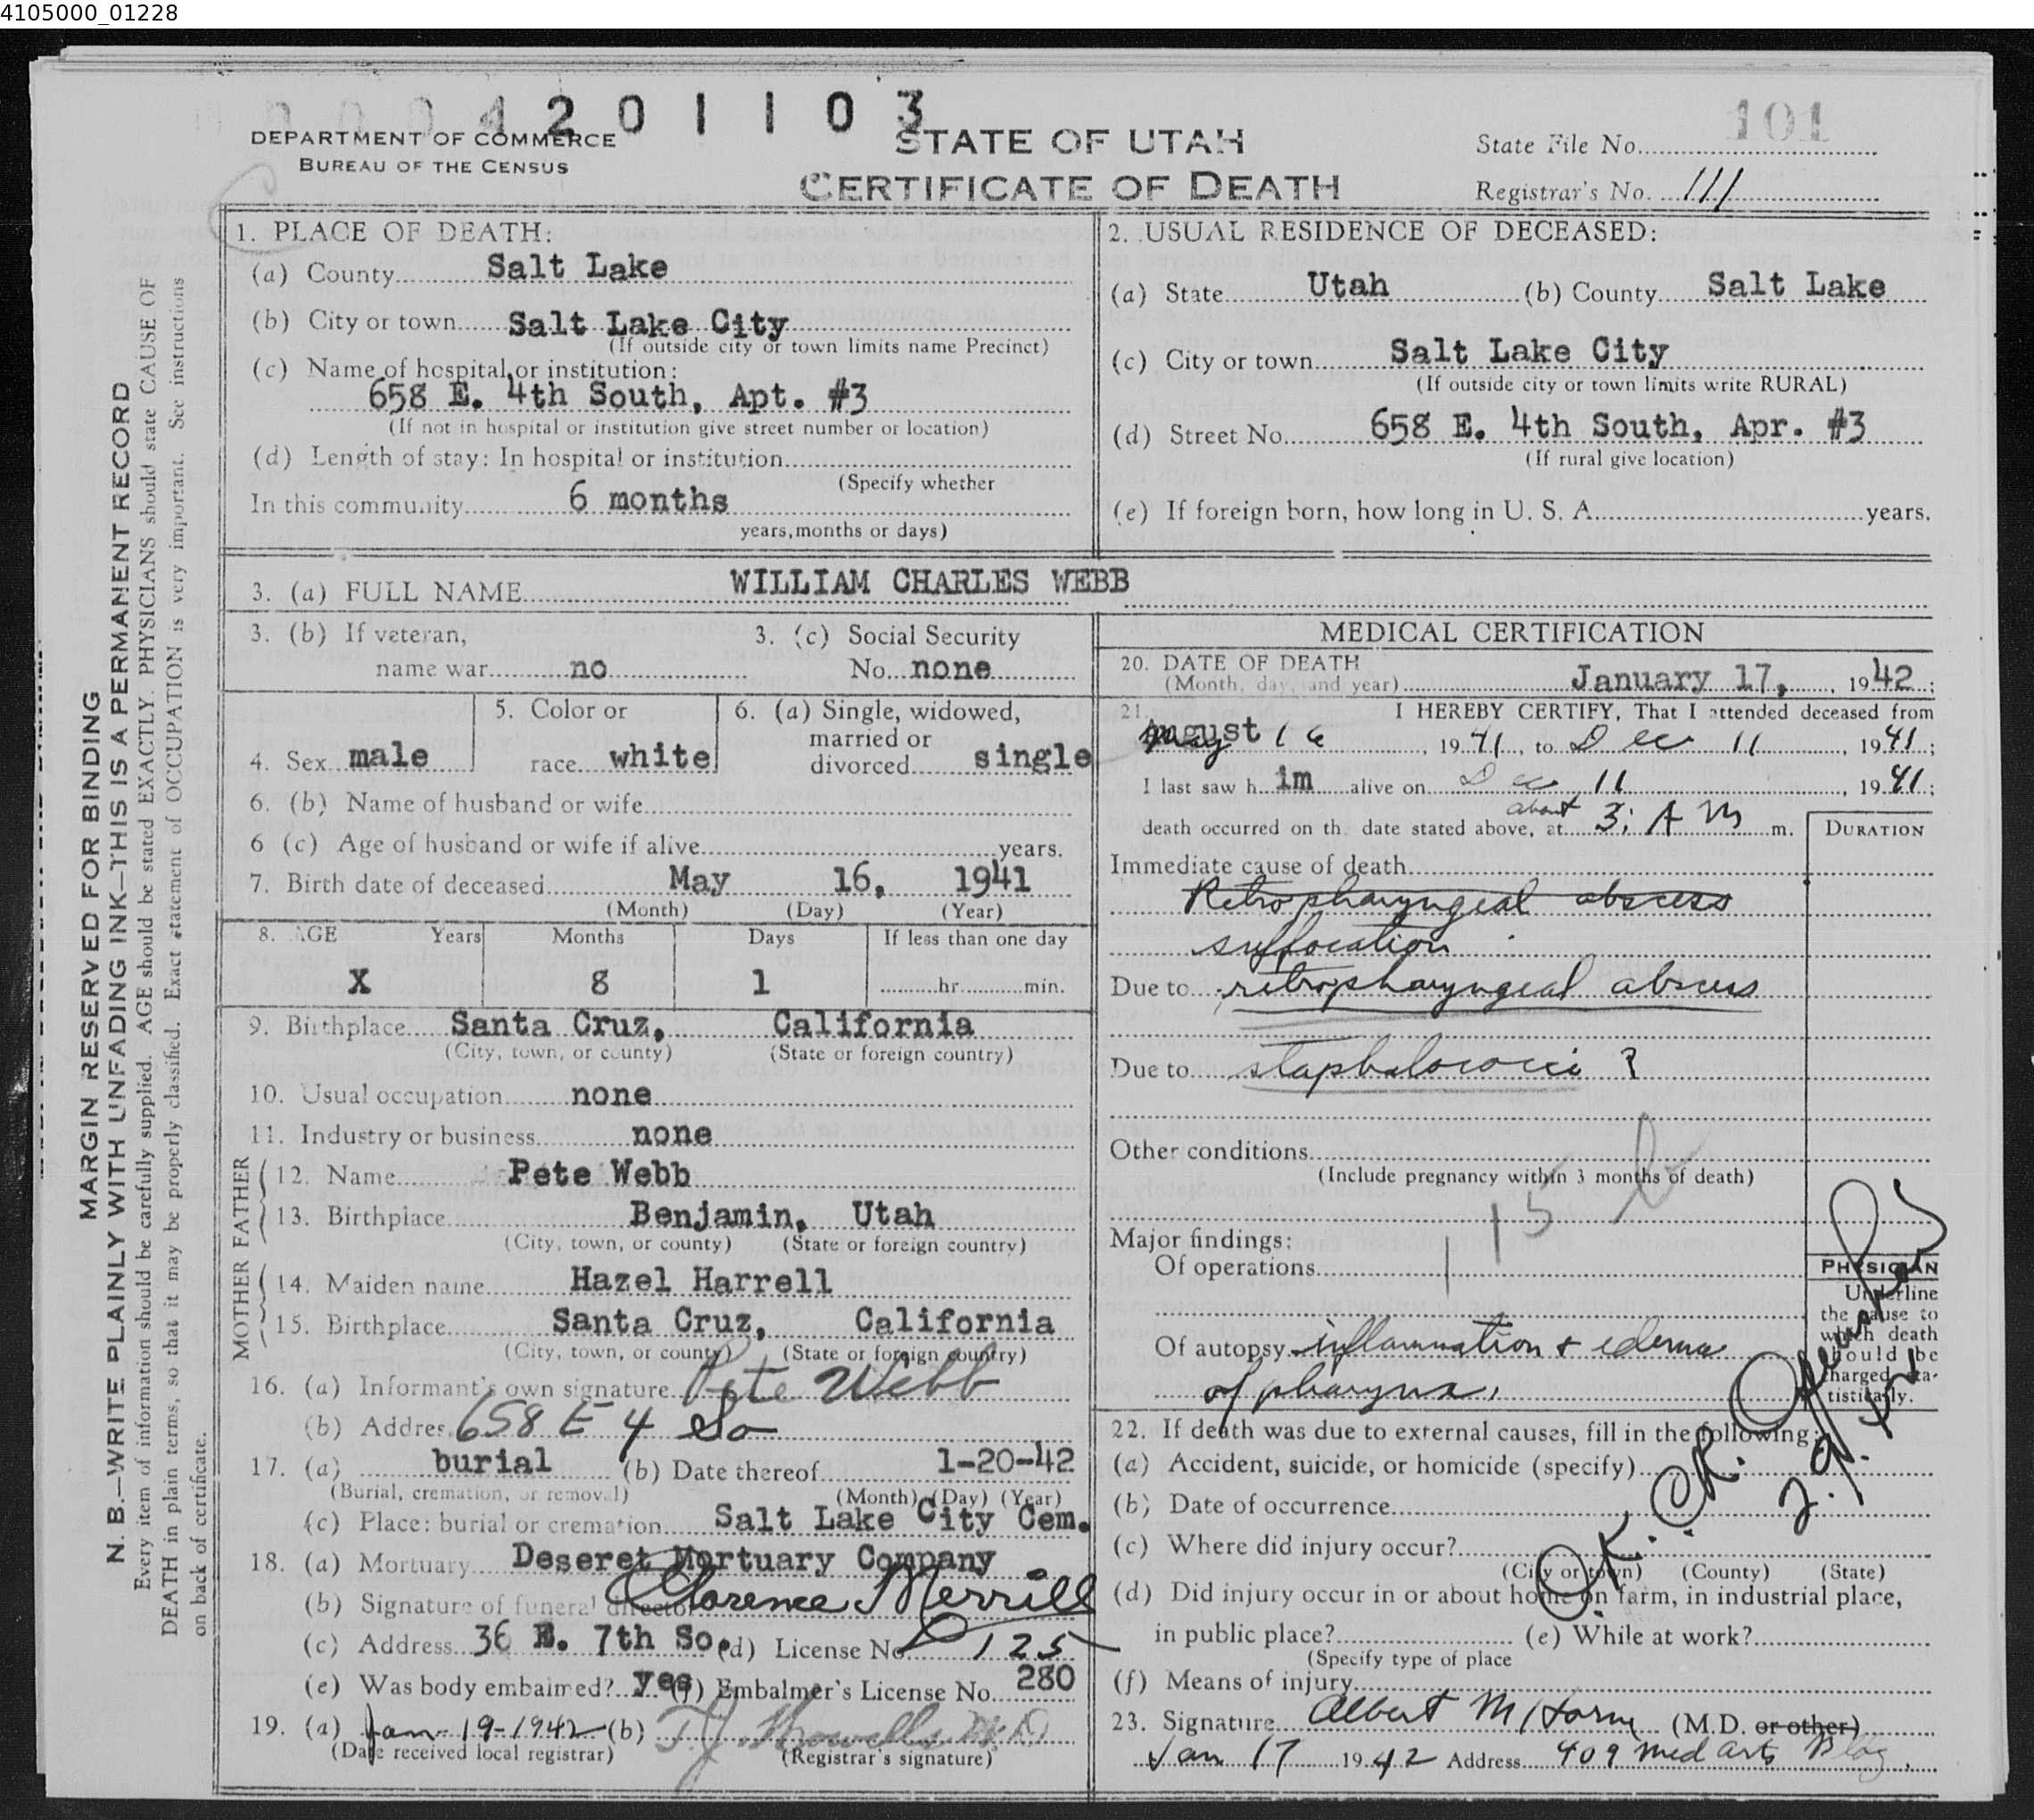 4105000_01228
4 2 0 1 1 0 3
101
DEPARTMENT OF COMMERCE
BUREAU OF THE CENSUS
STATE OF UTAH
CERTIFICATE OF DEATH
State File No.
Registrar's No. 111
MARGIN RESERVED FOR BINDING
N. B.—WRITE PLAINLY WITH UNFADING INK—THIS IS A PERMANENT RECORD
Every item of information should be carefully supplied. AGE should be stated EXACTLY. PHYSICIANS should state CAUSE OF
DEATH in plain terms, so that it may be properly classified. Exact statement of OCCUPATION is very important. See instructions
on back of certificate.
1. PLACE OF DEATH:
(a) County Salt Lake
(b) City or town Salt Lake City
(If outside city or town limits name Precinct)
(c) Name of hospital or institution:
658 E. 4th South, Apt. #3
(If not in hospital or institution give street number or location)
(d) Length of stay: In hospital or institution
(Specify whether
In this community 6 months
years, months or days)
2. USUAL RESIDENCE OF DECEASED:
(a) State Utah (b) County Salt Lake
(c) City or town Salt Lake City
(If outside city or town limits write RURAL)
(d) Street No. 658 E. 4th South, Apr. #3
(If rural give location)
(e) If foreign born, how long in U. S. A. years.
3. (a) FULL NAME WILLIAM CHARLES WEBB
3. (b) If veteran,
name war no
3. (c) Social Security
No. none
4. Sex male
5. Color or
race white
6. (a) Single, widowed,
married or
divorced single
6. (b) Name of husband or wife
6 (c) Age of husband or wife if alive years.
7. Birth date of deceased May 16, 1941
(Month) (Day) (Year)
8. AGE Years Months Days If less than one day
X 8 1 hr. min.
9. Birthplace Santa Cruz, California
(City, town, or county) (State or foreign country)
10. Usual occupation none
11. Industry or business none
FATHER
12. Name Pete Webb
13. Birthplace Benjamin, Utah
(City, town, or county) (State or foreign country)
MOTHER
14. Maiden name Hazel Harrell
15. Birthplace Santa Cruz, California
(City, town, or county) (State or foreign country)
16. (a) Informant's own signature Pete Webb
(b) Addres. 658 E 4 So
17. (a) burial (b) Date thereof 1-20-42
(Burial, cremation, or removal) (Month) (Day) (Year)
(c) Place: burial or cremation Salt Lake City Cem.
18. (a) Mortuary Deseret Mortuary Company
(b) Signature of funeral director Clarence Merrill
(c) Address 36 E. 7th So. (d) License No. 125
(e) Was body embalmed? yes (f) Embalmer's License No. 280
19. (a) Jan-19-1942 (b) T.J. Howells M.D.
(Date received local registrar) (Registrar's signature)
MEDICAL CERTIFICATION
20. DATE OF DEATH
(Month, day, and year) January 17, 1942;
21. I HEREBY CERTIFY, That I attended deceased from
August 16, 1941, to Dec 11, 1941;
I last saw him alive on Dec 11, 1941;
about
death occurred on th. date stated above, at 3: A M m.
DURATION
Immediate cause of death
Retropharyngeal abscess
suffocation
Due to retropharyngeal abscess
Due to staphalococci ?
Other conditions
(Include pregnancy within 3 months of death)
115 b
Major findings:
Of operations
Of autopsy inflammation & edema
of pharynx.
PHYSICIAN
Underline
the cause to
which death
should be
charged sta-
tistically.
22. If death was due to external causes, fill in the following:
(a) Accident, suicide, or homicide (specify)
(b) Date of occurrence
(c) Where did injury occur?
(City or town) (County) (State)
(d) Did injury occur in or about home on farm, in industrial place,
in public place? (e) While at work?
(Specify type of place
(f) Means of injury
O.K.
23. Signature Albert M Horne (M.D. or other)
Jan 17 1942 Address 409 Med Arts Bldg.